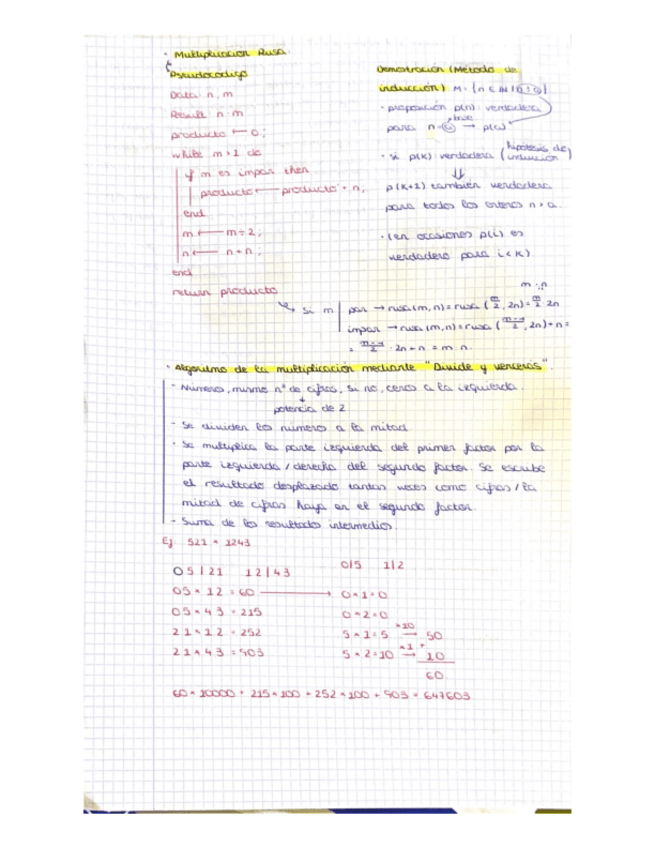 · Multiplicación Rusa.
Pseudocódigo
Data: n, m
Result n·m
producto ← 0;
while m > 1 do
if m es impar then
producto ← producto + n;
end
m ← m ÷ 2;
n ← n + n;
end
return producto
Demostración (Método de
inducción) M = {n ∈ IN |
· proposición p(n) verdadera
base
para n= → p(a)
· si p(k) verdadera (hipótesis de inducción)
⇓
p(k+1) también verdadera
para todos los enteros n > a.
· (en ocasiones p(i) es
verdadero para i < k)
m · n
si m par → rusa(m,n) = rusa (m/2, 2n) = m/2 · 2n
impar → rusa(m,n) = rusa (m-1/2, 2n) + n =
= m-1/2 · 2n + n = m · n.
· Algoritmo de la multiplicación mediante "Divide y vencerás".
- Números, mismo nº de cifras, si no, ceros a la izquierda.
↓
potencia de 2
- Se dividen los números a la mitad
- Se multiplica la parte izquierda del primer factor por la
parte izquierda/derecha del segundo factor. Se escribe
el resultado desplazado tantas veces como cifras/la
mitad de cifras haya en el segundo factor.
- Suma de los resultados intermedios.
Ej 521 × 1243
05|21 12|43
05 × 12 = 60 →
05 × 43 = 215
21 × 12 = 252
21 × 43 = 903
0|5 1|2
0 × 1 = 0
0 × 2 = 0
5 × 1 = 5 ×10 → 50
5 × 2 = 10 ×1 → + 10
60
60 × 10000 + 215 × 100 + 252 × 100 + 903 = 647603